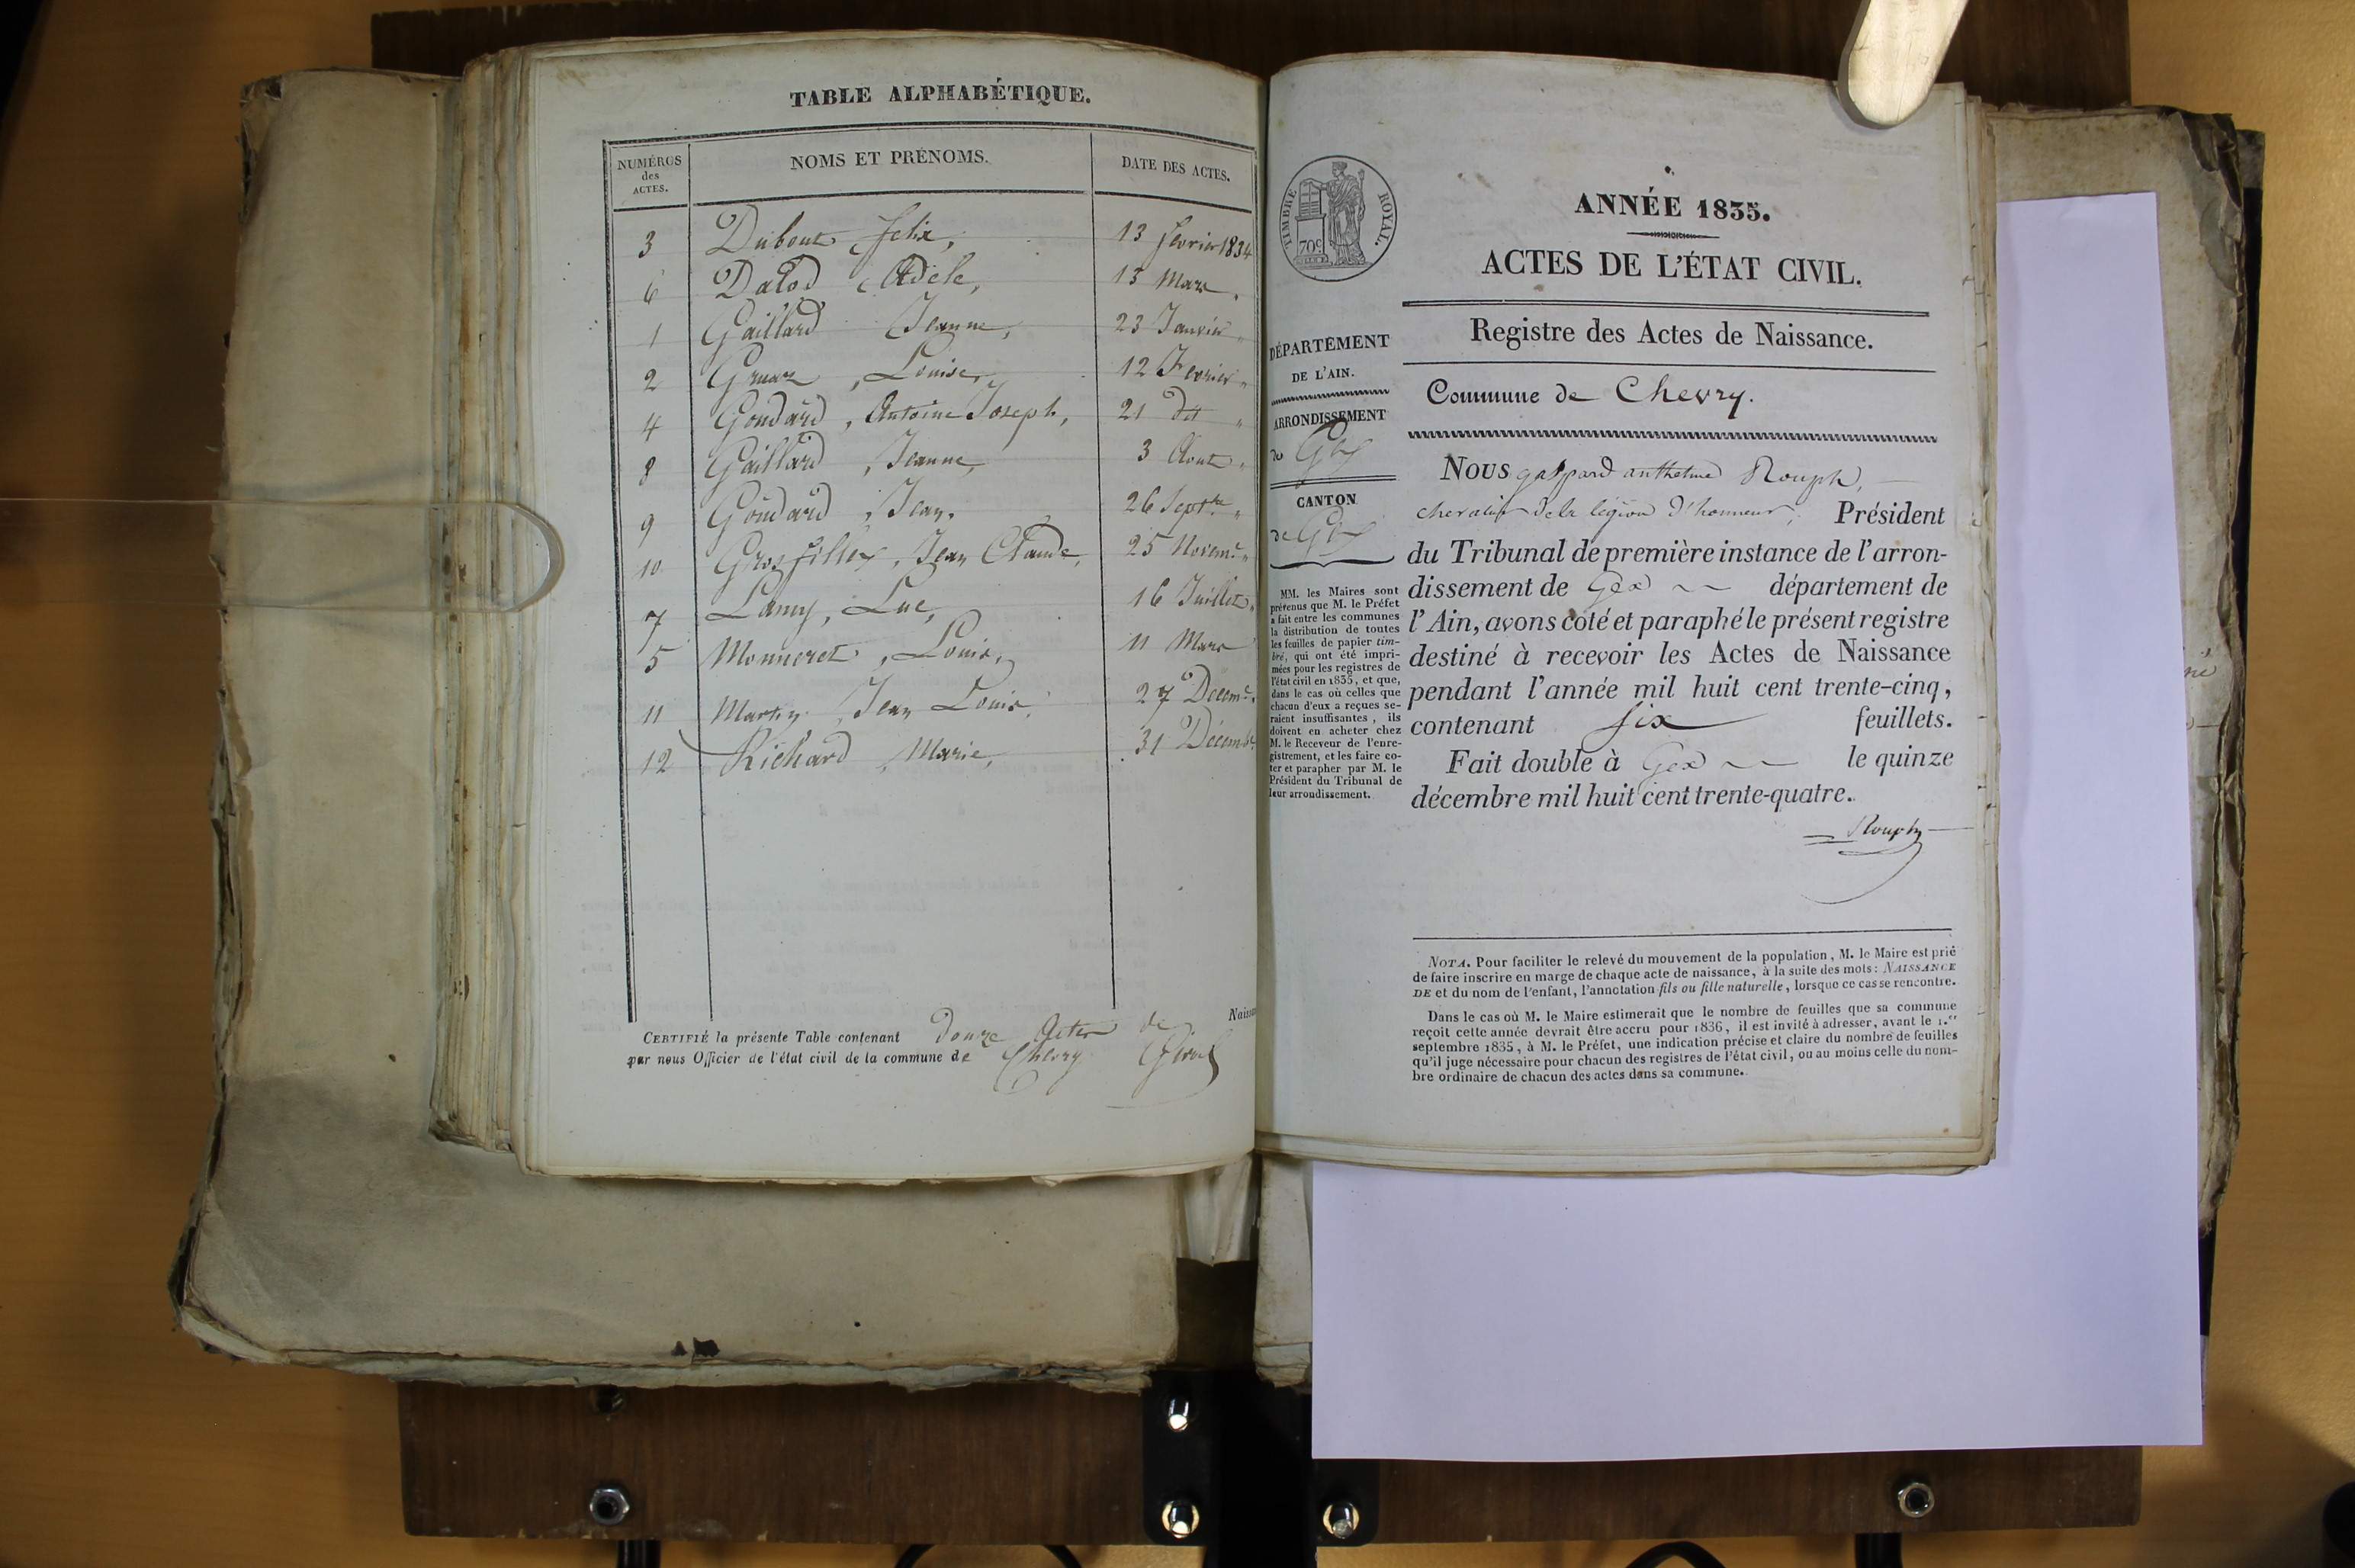 TABLE ALPHABÉTIQUE.
NUMÉROS des ACTES. NOMS ET PRÉNOMS. DATE DES ACTES.
3 Dubout felix, 13 fevrier 1834
6 Dalod Adèle, 13 Mars
1 Gaillard Jeanne, 23 Janvier "
2 Louise, 12 Fevrier "
4 Goudard, Antoine Joseph, 21 dit "
8 Gaillard, Jeanne, 3 Aout "
9 Goudard, Jean, 26 Septbre "
10 Grosfilley, Jean Claude, 25 Novem. "
7 Lamy, Luc, 16 Juillet "
5 Monneret, Louis, 11 Mars
11 Martin Jean Louis, 27 Décem.
12 Richard, Marie, 31 Décembr
CERTIFIÉ la présente Table contenant Douze Actes de Naissa
par nous Officier de l'état civil de la commune de Chevry
TIMBRE ROYAL.
70c
ANNÉE 1835.
ACTES DE L'ÉTAT CIVIL.
Registre des Actes de Naissance.
Commune de Chevry.
DÉPARTEMENT
DE L'AIN.
ARRONDISSEMENT
de Gex
CANTON
de Gex
MM. les Maires sont
prévenus que M. le Préfet
a fait entre les communes
la distribution de toutes
les feuilles de papier tim-
bré, qui ont été impri-
mées pour les registres de
l'état civil en 1835, et que,
dans le cas où celles que
chacun d'eux a reçues se-
raient insuffisantes, ils
doivent en acheter chez
M. le Receveur de l'enre-
gistrement, et les faire co-
ter et parapher par M. le
Président du Tribunal de
leur arrondissement.
Nous gaspard anthelme Rouph,
chevalier de la légion d'honneur, Président
du Tribunal de première instance de l'arron-
dissement de Gex département de
l'Ain, avons coté et paraphé le présent registre
destiné à recevoir les Actes de Naissance
pendant l'année mil huit cent trente-cinq,
contenant six feuillets.
Fait double à Gex le quinze
décembre mil huit cent trente-quatre.
Rouph
NOTA. Pour faciliter le relevé du mouvement de la population, M. le Maire est prié
de faire inscrire en marge de chaque acte de naissance, à la suite des mots: NAISSANCE
DE et du nom de l'enfant, l'annotation fils ou fille naturelle, lorsque ce cas se rencontre.
Dans le cas où M. le Maire estimerait que le nombre de feuilles que sa commune
reçoit cette année devrait être accru pour 1836, il est invité à adresser, avant le 1.er
septembre 1835, à M. le Préfet, une indication précise et claire du nombre de feuilles
qu'il juge nécessaire pour chacun des registres de l'état civil, ou au moins celle du nom-
bre ordinaire de chacun des actes dans sa commune.